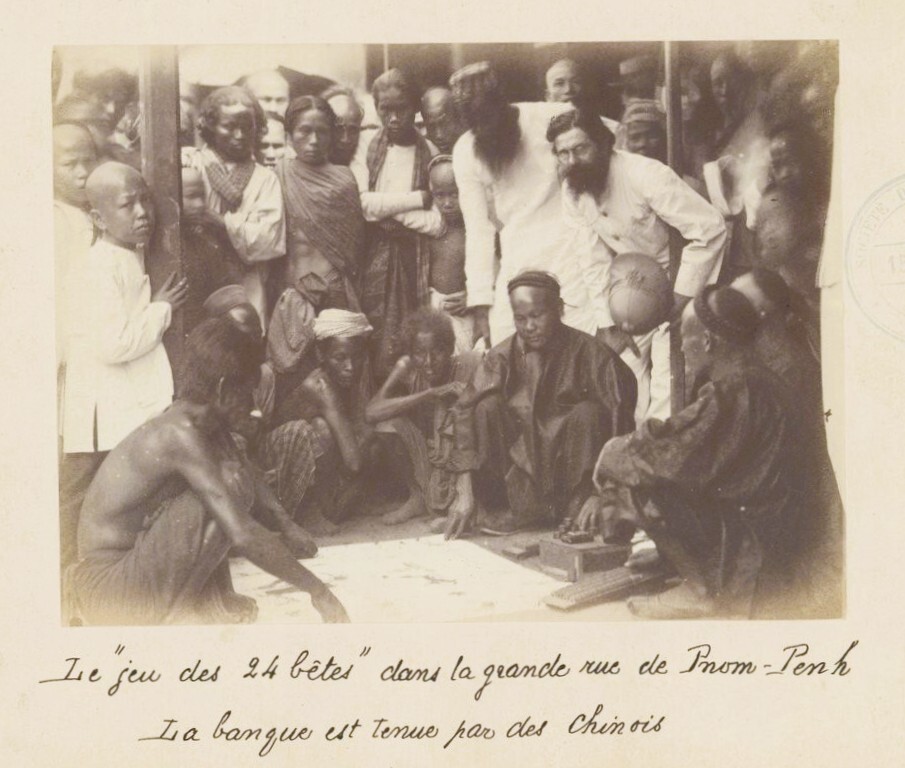 Le "jeu des 24 bêtes" dans la grande rue de Pnom-Penh
La banque est tenue par des Chinois